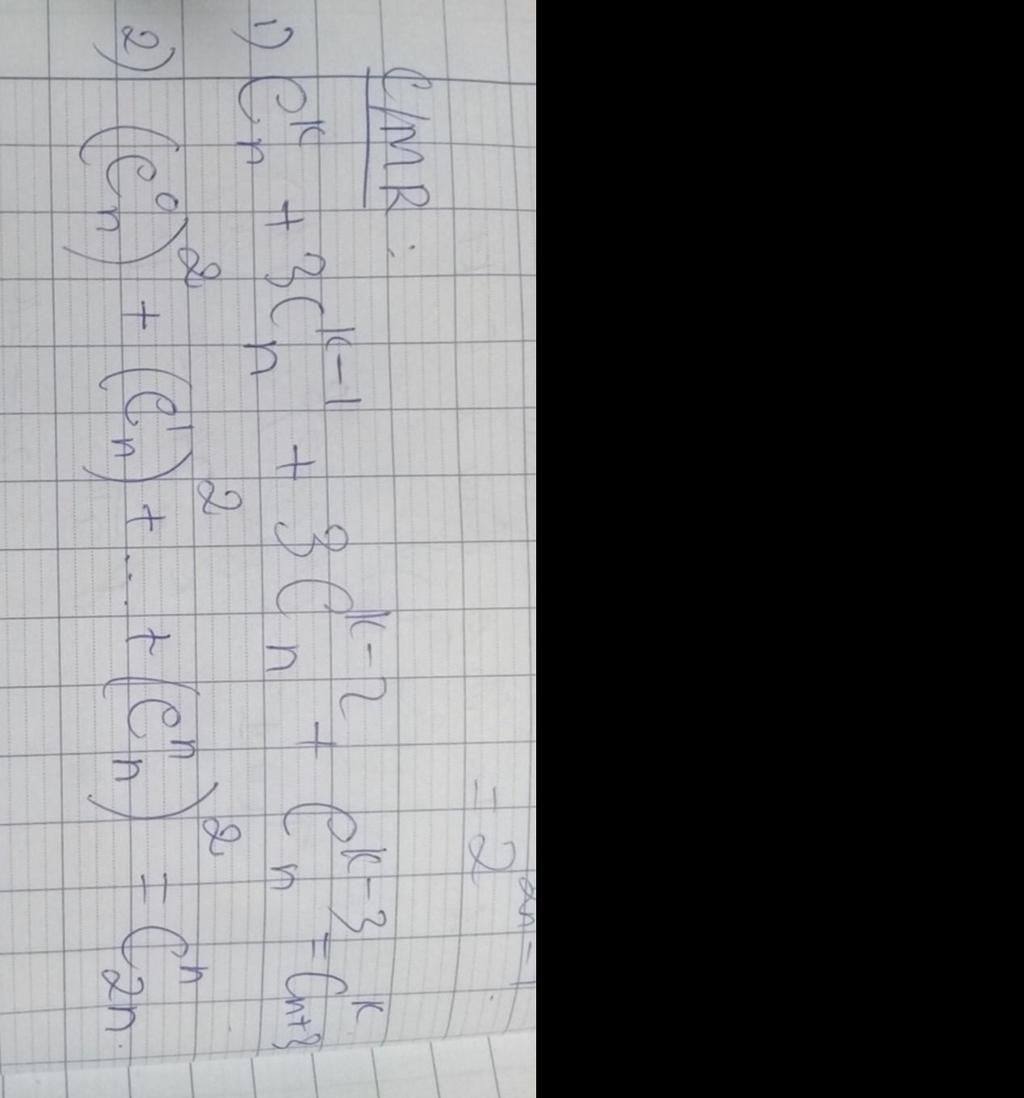 = 2^{2n-1}.
C/MR:
1) C_n^k + 3C_n^{k-1} + 3C_n^{k-2} + C_n^{k-3} = C_{n+3}^k
2) (C_n^0)^2 + (C_n^1)^2 + ... + (C_n^n)^2 = C_{2n}^n.